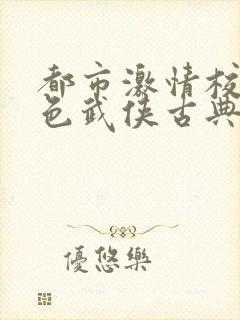 都市激情校
色武侠古典
優悠樂